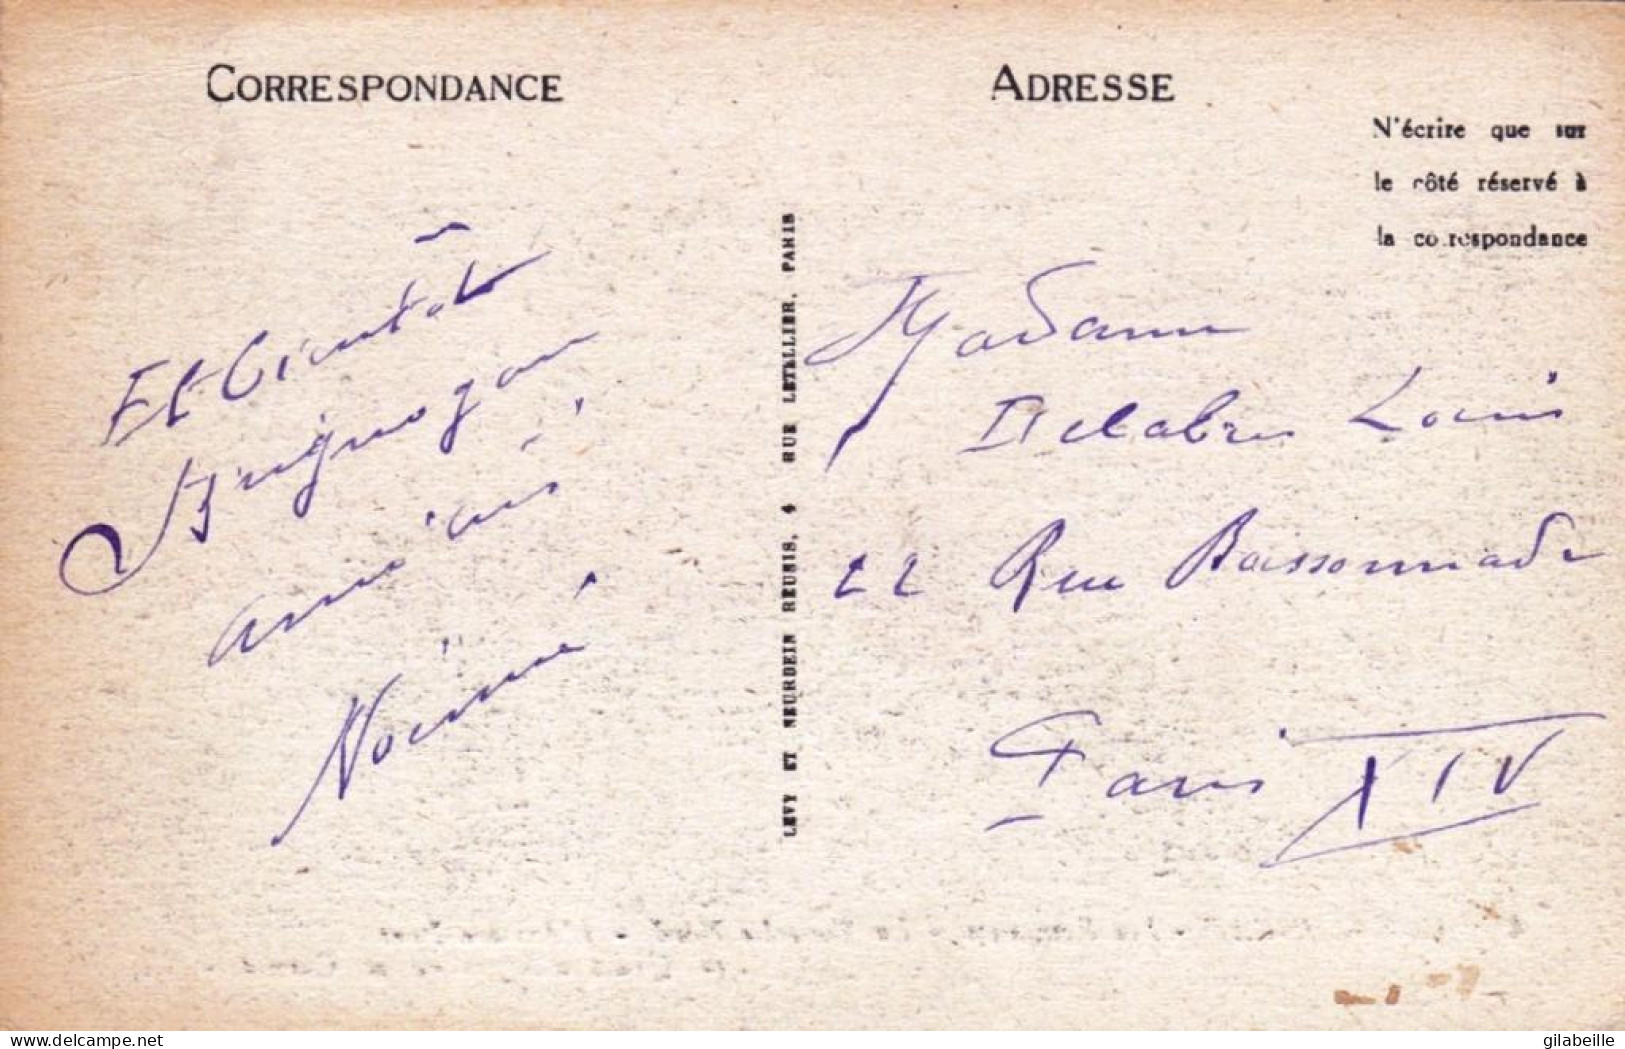 CORRESPONDANCE
Et bientôt
Brignogan
Amitiés
Noémie
LEVY ET NEURDEIN REUNIS, 4 RUE LETELLIER, PARIS
ADRESSE
N'écrire que sur
le côté réservé à
la correspondance
Madame
Delabre Louis
22 Rue Boissonnade
Paris XIV
delcampe.net
gilabeille